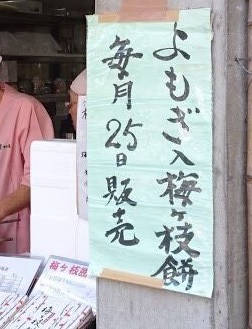 よもぎ入梅ヶ枝餅
毎月25日販売
梅ヶ枝